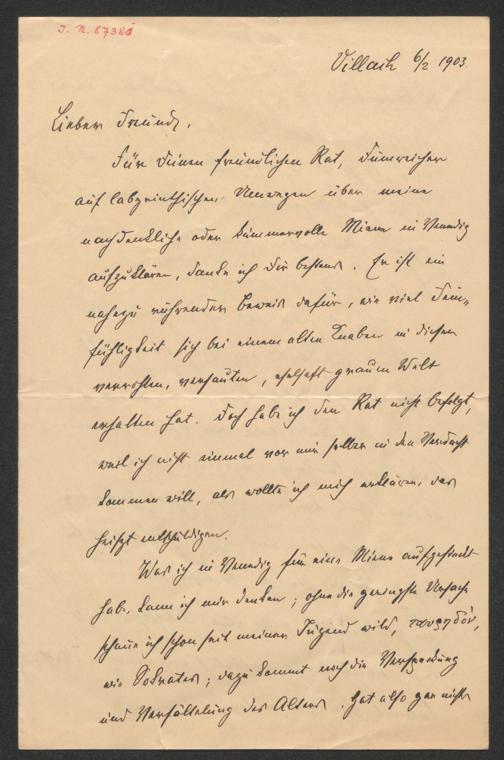 I. N. 87380
Villach 6/2 1903.
Lieber Freund,
Für Deinen freundlichen Rat, Dumreicher
auf labyrinthischen Umwegen über meine
nachdenkliche oder kummervolle Miene in Venedig
aufzuklären, danke ich Dir bestens. Er ist ein
nahezu rührender Beweis dafür, wie viel Fein-
fühligkeit sich bei einem alten Knaben in dieser
verrohten, versauten, ekelhaft grauen Welt
erhalten hat. Doch habe ich den Rat nicht befolgt,
weil ich nicht einmal vor mir selber in den Verdacht
kommen will, als wollte ich mich erklären, das
heißt entschuldigen.
Was ich in Venedig für eine Miene aufgesteckt
habe, kann ich mir denken; ohne die geringste Ursache
schaue ich schon seit meiner Jugend wild, ταυρηδόν,
wie Sokrates; dazu kommt noch die
und Verfältelung des Alters. Hat also gar nichts